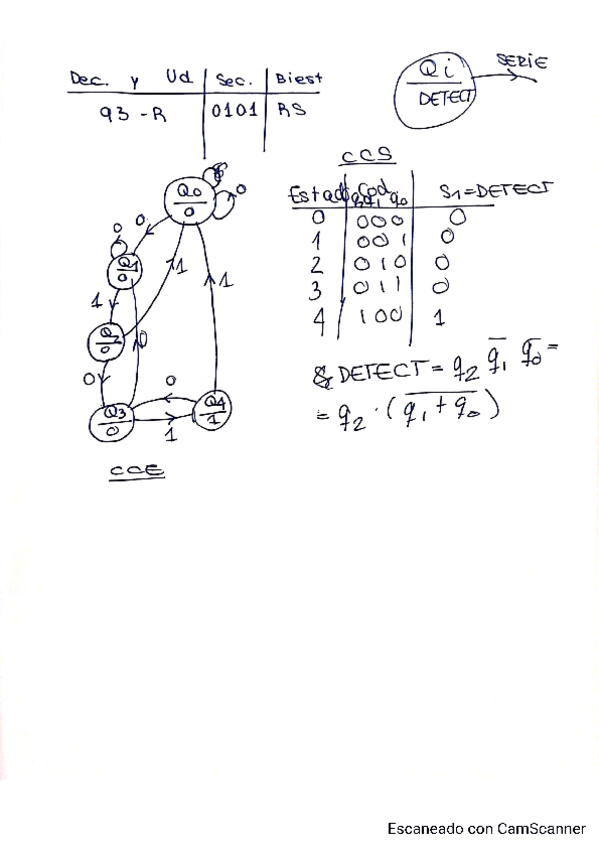 Dec. y Ud Sec. Biest
93-R 0101 RS
Qi SERIE
DETECT
CCS
Estado Cod q2 q1 q0 S1=DETECT
0 000 0
1 001 0
2 010 0
3 011 0
4 100 1
Q0
0
0
0
0
Q1
0
1
1
1
Q2
0
0
0
0
Q3
0
1
Q4
1
DETECT = q2 q̅1 q̅0 =
= q2 · (q1 + q0)̅
CCE
Escaneado con CamScanner